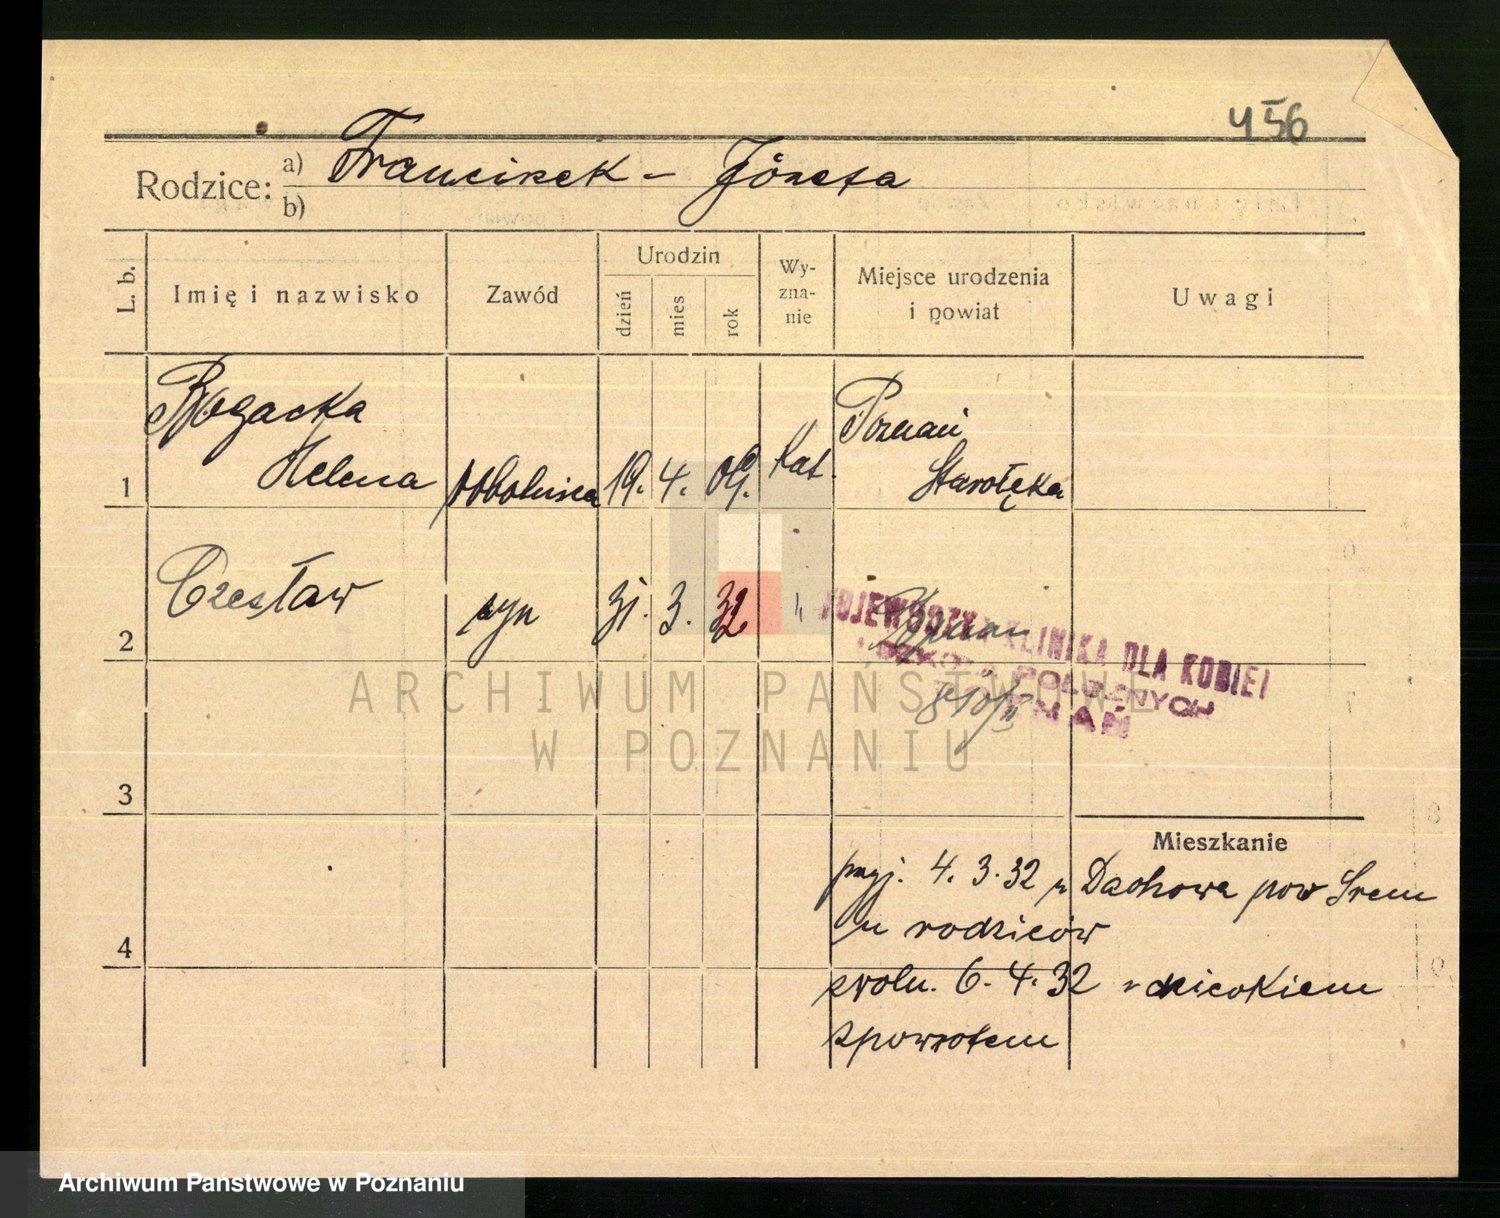 456
Rodzice: a) Franciszek - Józefa
b)
L. b.
Imię i nazwisko
Zawód
Urodzin
dzień
mies
rok
Wy-
zna-
nie
Miejsce urodzenia
i powiat
Uwagi
1
Bogacka
Helena
robotnica
19. 4. 09.
kat.
Poznań
Starołęka
2
Czesław
syn
31. 3. 32
"
Poznań
WOJEWÓDZKA KLINIKA DLA KOBIET
I SZKOŁA POŁOŻNYCH
POZNAŃ
3
4
Mieszkanie
przyj. 4. 3. 32 z Dachowa pow Śrem
u rodziców
zwoln. 6. 4. 32 z dzieckiem
zpowrotem
ARCHIWUM PAŃSTWOWE
W POZNANIU
Archiwum Państwowe w Poznaniu